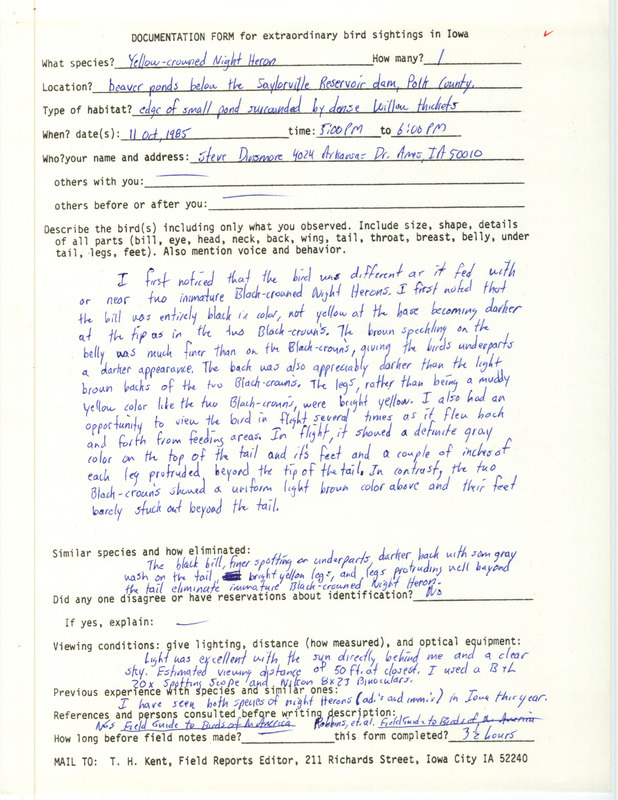 DOCUMENTATION FORM for extraordinary bird sightings in Iowa
What species? Yellow-crowned Night Heron How many? 1
Location? beaver ponds below the Saylorville Reservoir dam, Polk County.
Type of habitat? edge of small pond surrounded by dense Willow thickets
When? date(s): 11 Oct, 1985 time: 5:00 PM to 6:00 PM
Who?your name and address: Steve Dinsmore 4024 Arkansas Dr. Ames, IA 50010
others with you:
others before or after you:
Describe the bird(s) including only what you observed. Include size, shape, details
of all parts (bill, eye, head, neck, back, wing, tail, throat, breast, belly, under
tail, legs, feet). Also mention voice and behavior.
I first noticed that the bird was different as it fed with
or near two immature Black-crowned Night Herons. I first noted that
the bill was entirely black in color, not yellow at the base becoming darker
at the tip as in the two Black-crown's. The brown speckling on the
belly was much finer than on the Black-crown's, giving the birds underparts
a darker appearance. The back was also appreciably darker than the light
brown backs of the two Black-crowns. The legs, rather than being a muddy
yellow color like the two Black-crown's, were bright yellow. I also had an
opportunity to view the bird in flight several times as it flew back
and forth from feeding areas. In flight, it showed a definite gray
color on the top of the tail and it's feet and a couple of inches of
each leg protruded beyond the tip of the tail. In contrast, the two
Black-crown's showed a uniform light brown color above and their feet
barely stuck out beyond the tail.
Similar species and how eliminated:
The black bill, finer spotting on underparts, darker back with som gray
wash on the tail, bright yellow legs, and legs protruding well beyond
the tail eliminate immature Black-crowned Night Heron.
Did any one disagree or have reservations about identification? No
If yes, explain:
Viewing conditions: give lighting, distance (how measured), and optical equipment:
Light was excellent with the sun directly behind me and a clear
sky. Estimated viewing distance of 50 ft. at closest. I used a B+L
20x Spotting Scope and Nikon 8x23 Binoculars.
Previous experience with species and similar ones:
I have seen both species of night Herons (ad.'s and imm.'s) in Iowa this year.
References and persons consulted before writing description:
NGS Field Guide to Birds of N. America Robbins, et. al. Field Guide to Birds of N. America
How long before field notes made? this form completed? 3½ hours
MAIL TO: T. H. Kent, Field Reports Editor, 211 Richards Street, Iowa City IA 52240